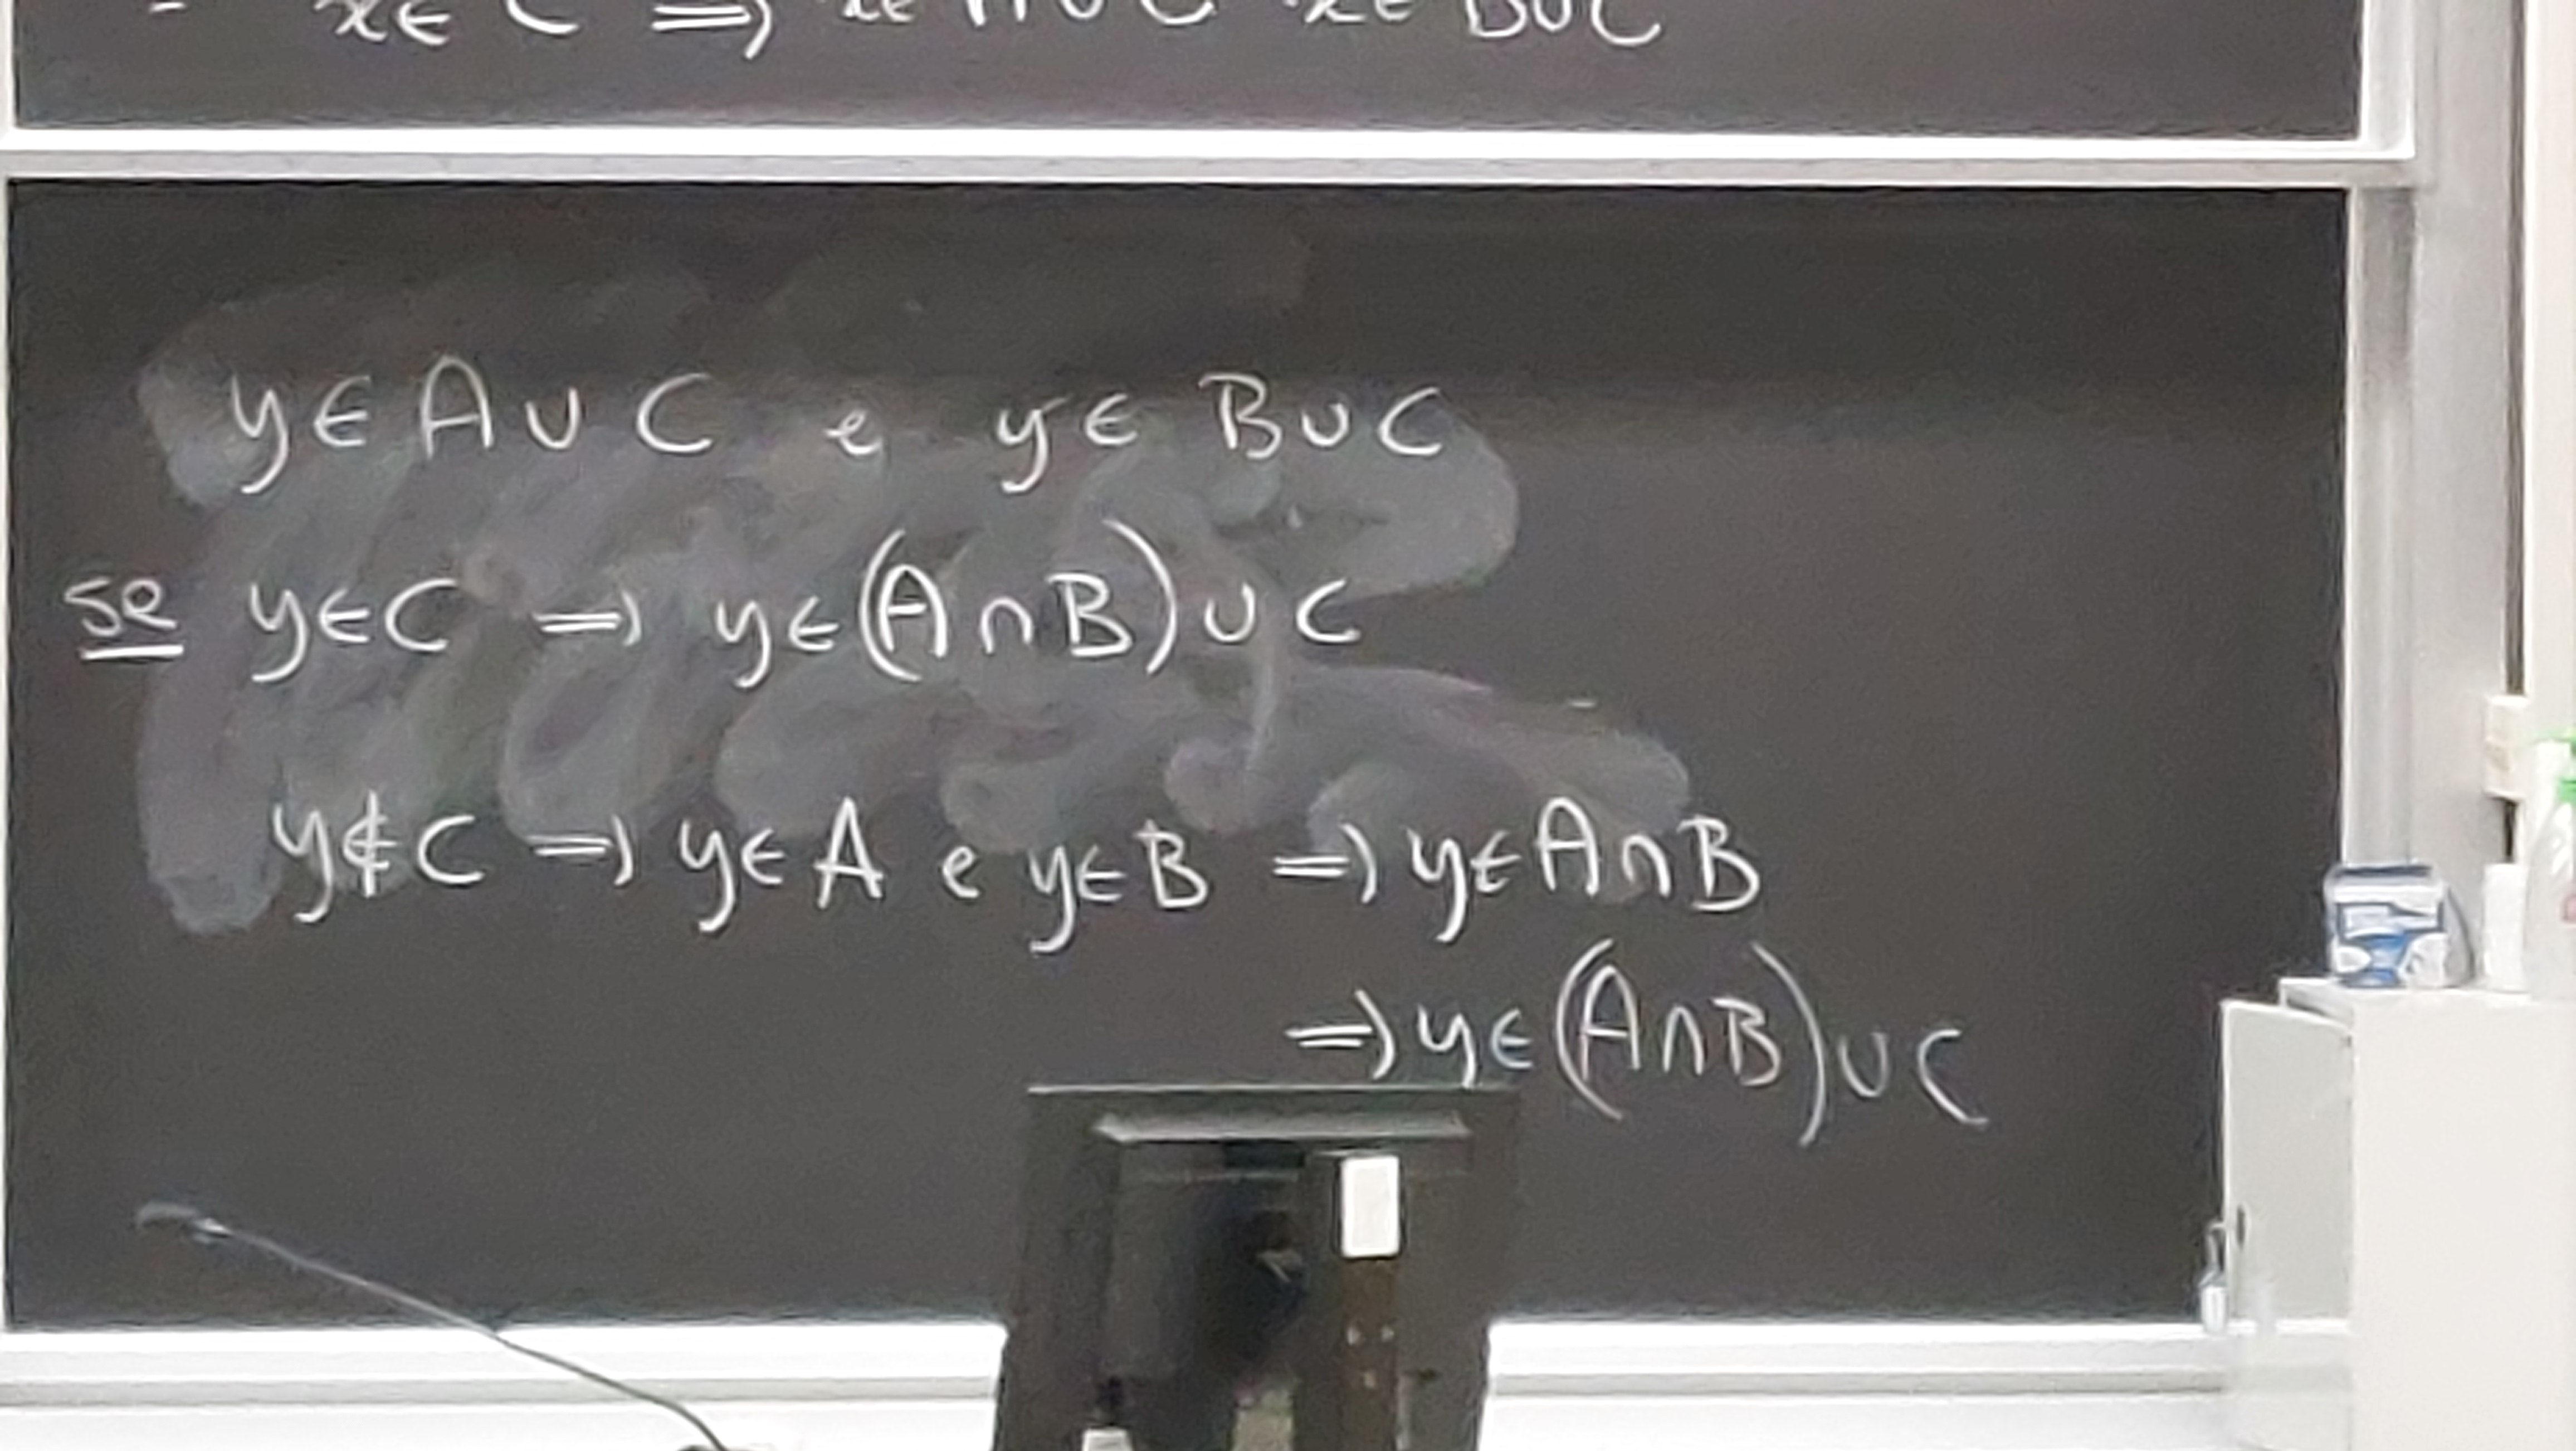 - x∈ C ⟹ x∈ A∪C x∈ B∪C
y∈ A∪C e y∈ B∪C
se y∈C ⟹ y∈(A∩B)∪C
y∉C ⟹ y∈A e y∈B ⟹ y∈A∩B
⟹ y∈(A∩B)∪C